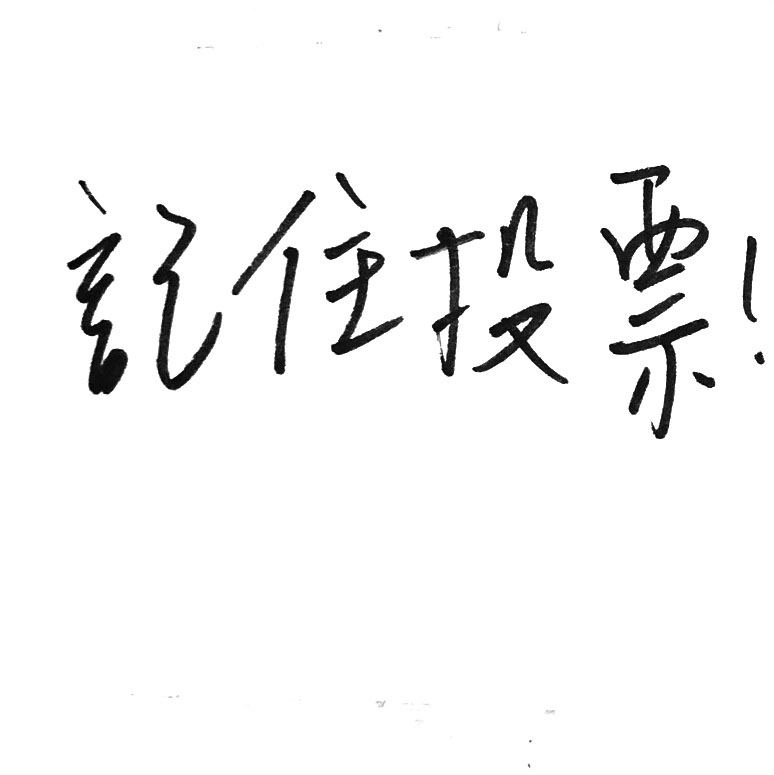 記住投票!